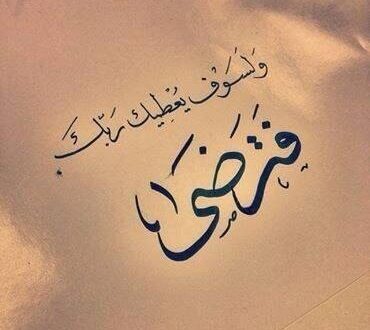 وَلَسَوْفَ يُعْطِيكَ رَبُّكَ
فَتَرَضَى